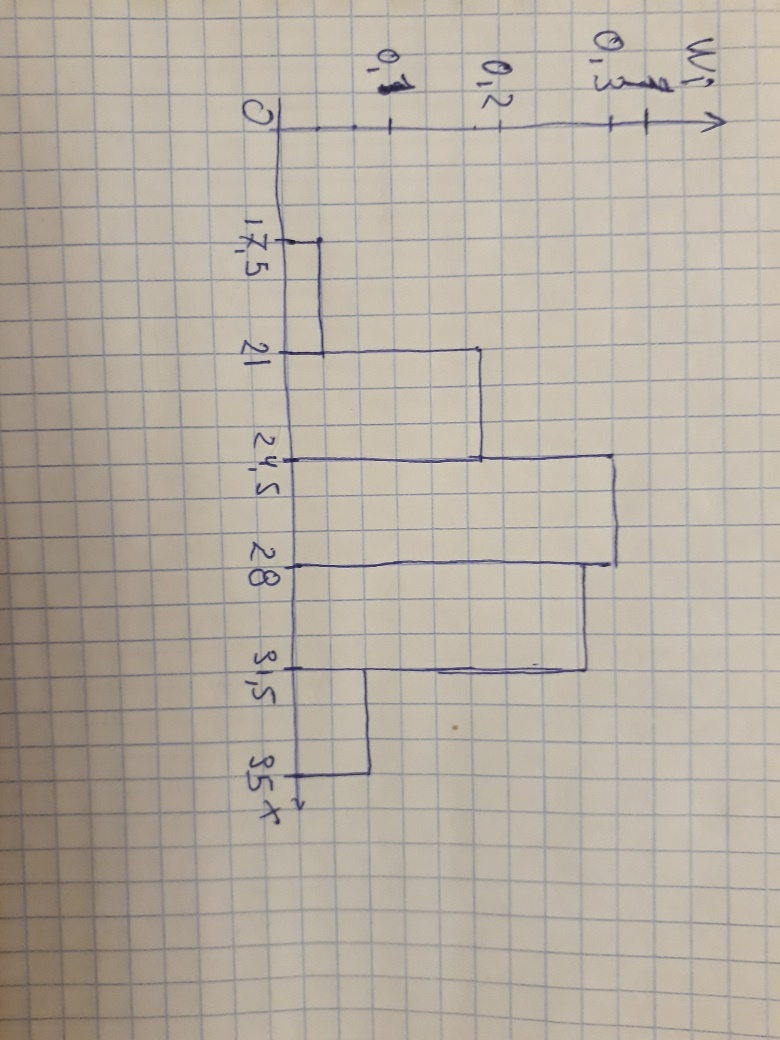 Wi
0,3
0,2
0,1
0
17,5
21
24,5
28
31,5
35
x